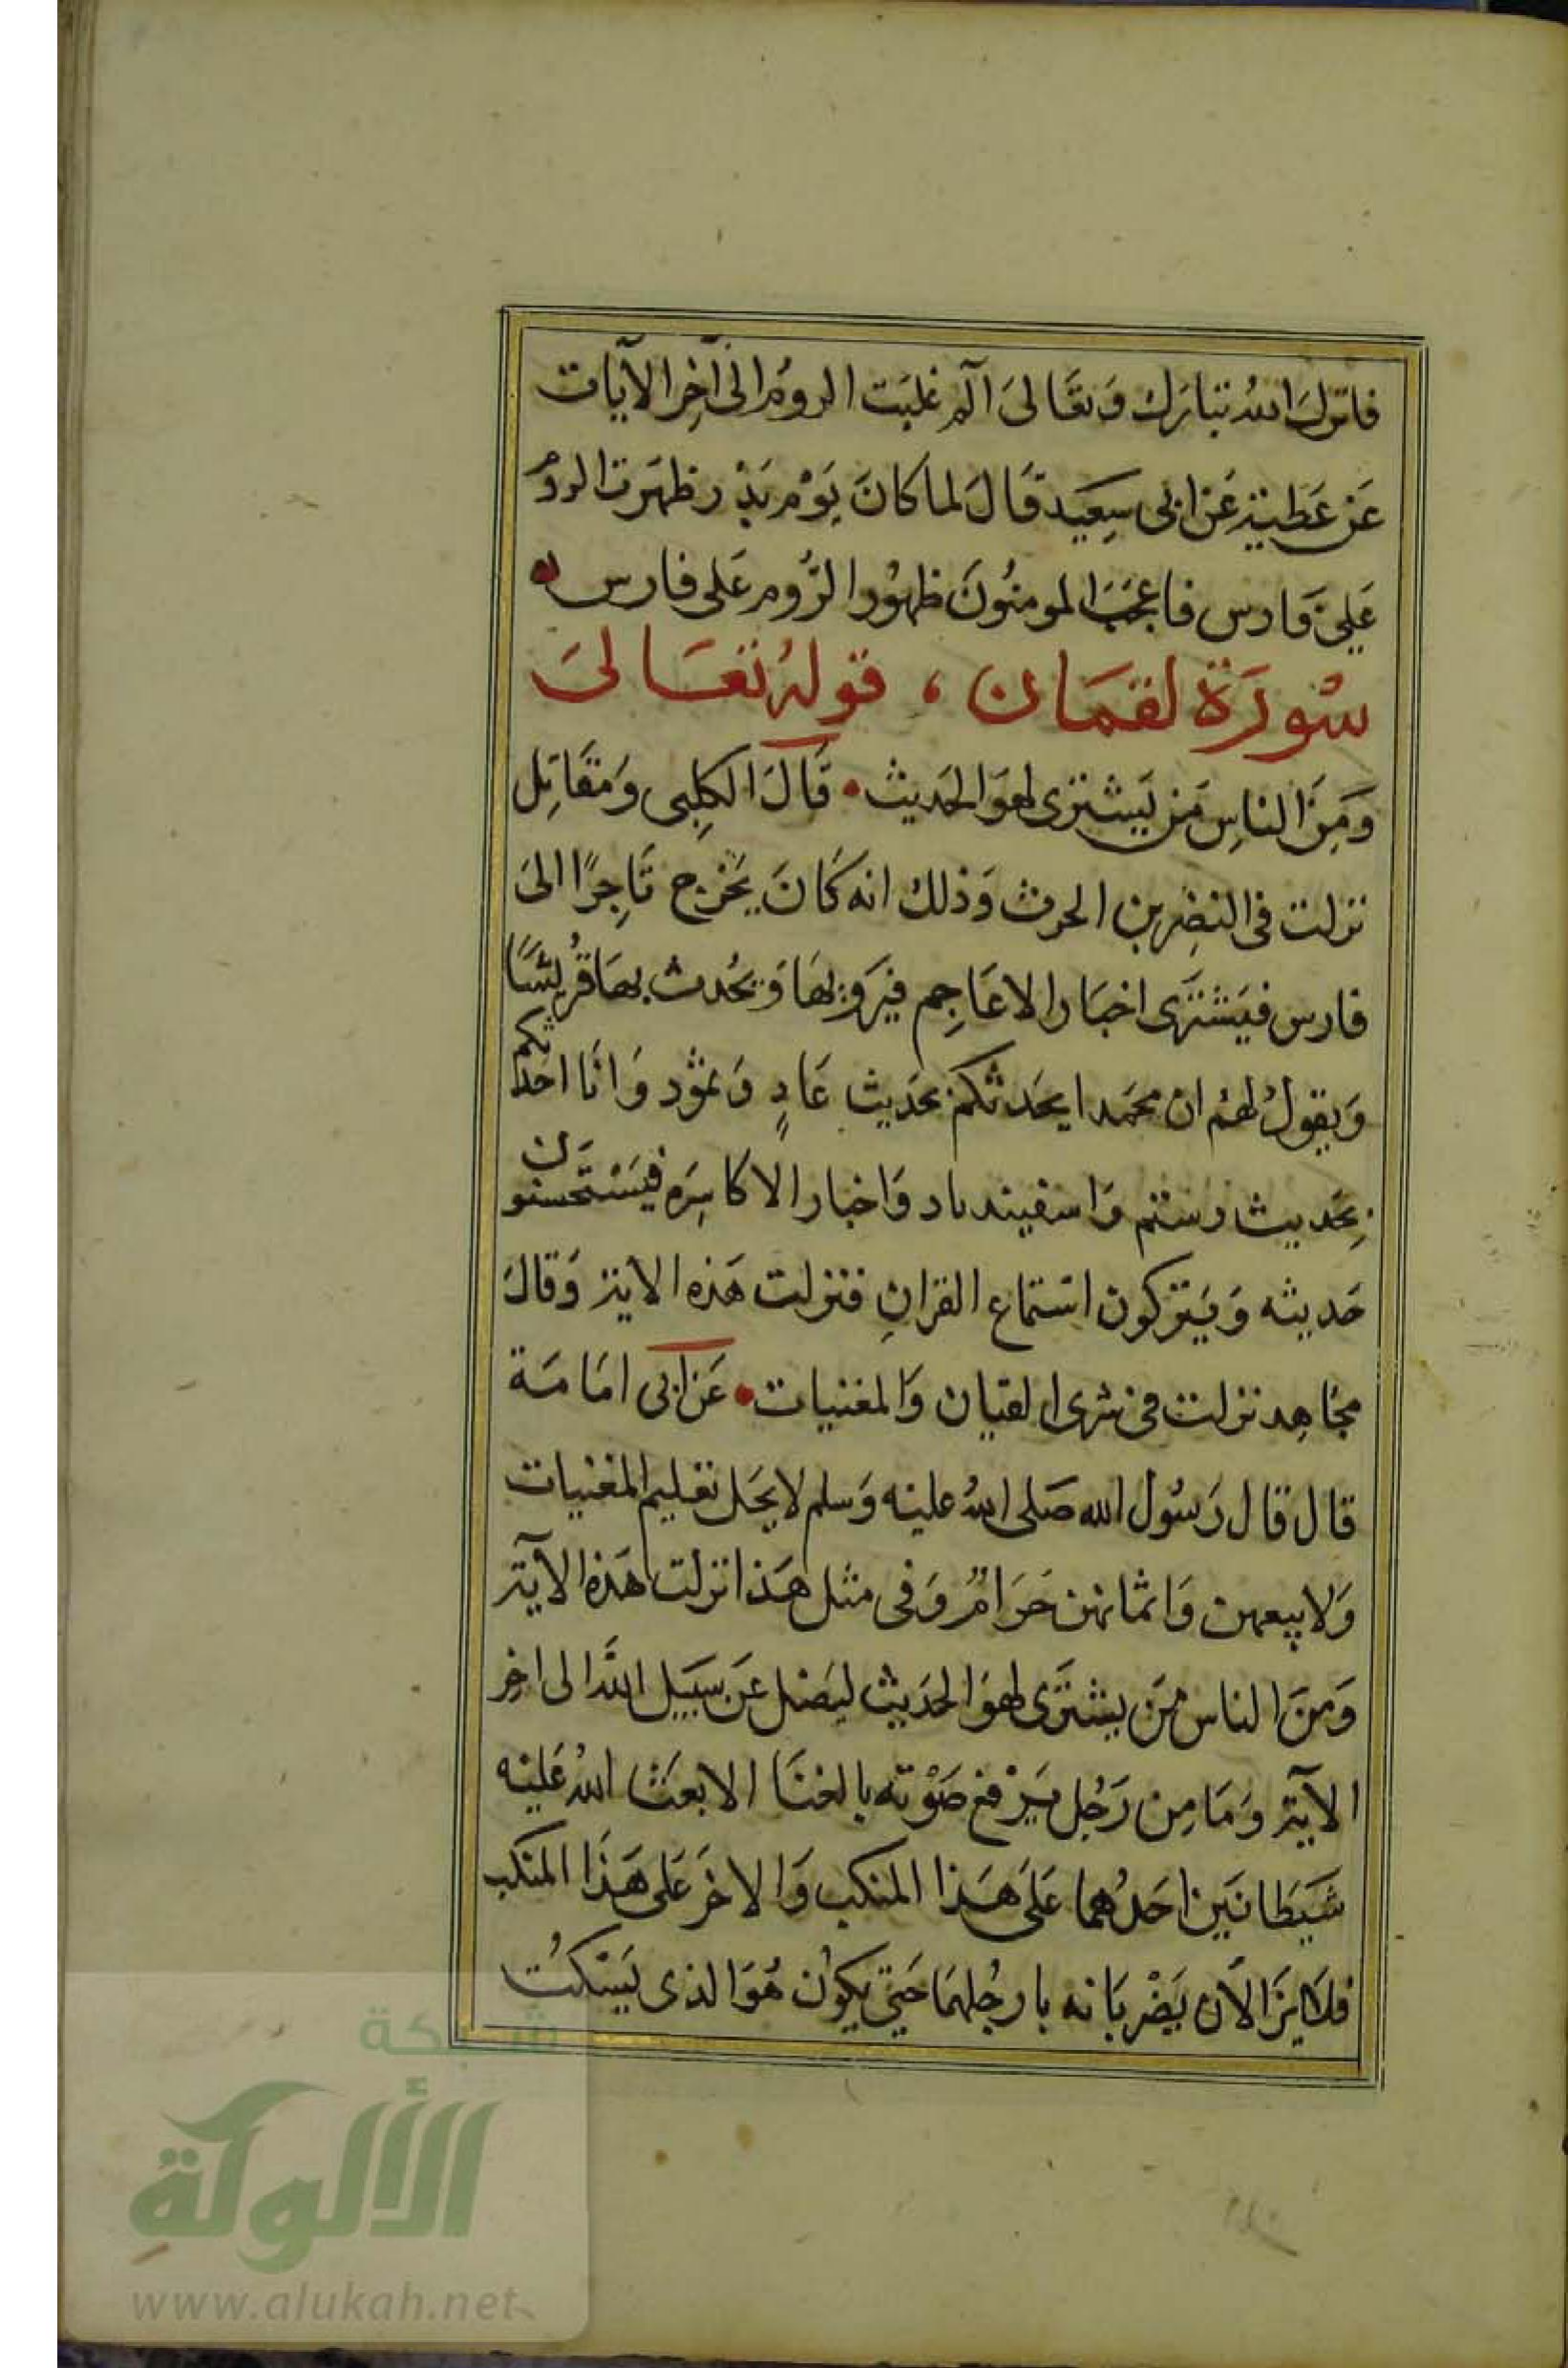 فانزل الله تبارك وَتعَالىَ آلم غلبَت الرومُ الىَ آخِر الآيات
عَن عَطيةَ عَن ابى سِعَيد قَالَ لما كانَ يَوْم بَدْر ظهَرت الرومُ
عَلىَ فَارس فاعجَبَ المومنوُنَ ظهوُر الرُّوم عَلى فارس
سُورَة لقمَان ، قوله تعَالىَ
وَمِنَ الناسِ مَن يَشترى لهوَ الحَديث • قَالَ الكلِبى وَمقَاتِل
نزلت فى النضِر بن الحرث وَذلك انه كَانَ يَخرج تَاجِرًا الىَ
فارس فيَشترَى اخبَار الاعَاجِم فيَروِيهَا وَيحُدث بهَا قُريشَا
وَيقولُ لهَم ان محمَدا يحَدثكم بحَديث عَادٍ وَثموُد وَانَا احَدثكم
بِحَديث رستم وَاسفيندياد وَاخبار الاكاسِرَه فيَسْتحسنون
حَديثه وَيَتركون اسَتماع القرانِ فنزلت هَذه الاية وَقالَ
مجَاهِد نزلت فى شرى القيان وَالمغنيات • عَن ابى امَامَة
قال قال رَسُول الله صَلى اللهُ عليَه وَسلم لا يحَل تعَليم المغَنيات
وَلا بيعهن وَاثمانهن حَرَامٌ وَفى مثل هَذا نزلت هَذه الآية
وَمنَ الناس مَن يشترَى لهوَ الحَديث ليَضل عَن سَبيَل اللَّه الى اخِر
الآية وَمَا مِن رَجُل يَرْفع صَوْته بالغنَا الا بعَث اللهُ عَليَه
شَيَطانَين احَدُهما عَلىَ هَذا المنكب وَالاخَر عَلى هَذَا المنكب
فلاَ يزَالاَن يَضْربَانه بارجُلهمَا حَتىَّ يكوُن هُوَ الذى يَسْكتُ
شبكة
الألوكة
www.alukah.net